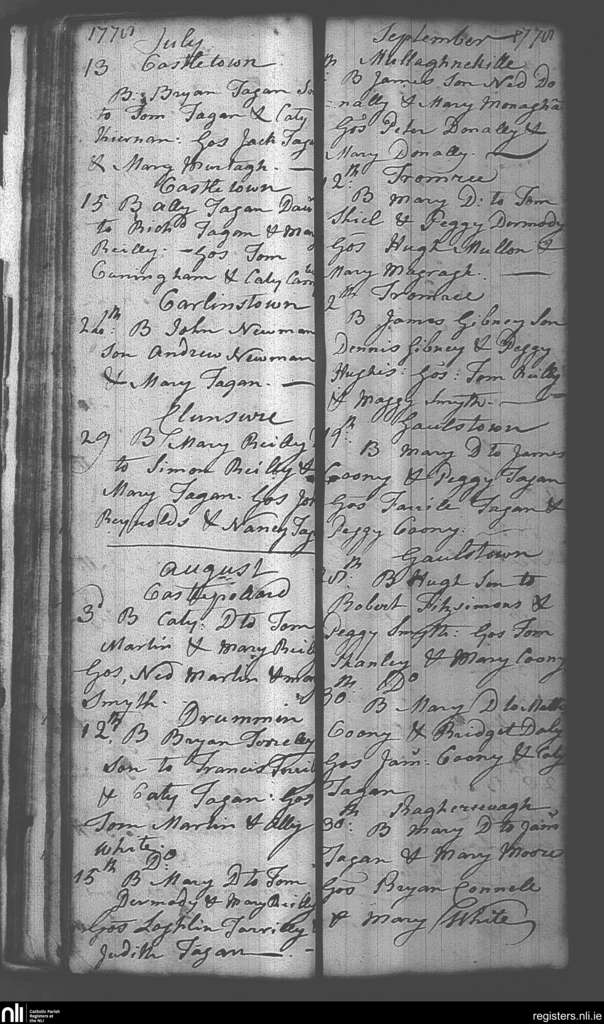 1778 July
13 Castletown
B: Bryan Fagan Son
to Tom Fagan & Caty
Kiernan: Gos Jack Faga
& Mary Murtagh. —
Castletown
15 B Ally Fagan Daur
to Richd Fagan & Mary
Reilly: – Gos Tom
Cuningham & Caty
Carlinstown
24th: B John Newman
Son Andrew Newman
& Mary Fagan. —
Clunsure
29 B Mary Reilly
to Simon Reilly &
Mary Fagan. Gos Jon
Reynolds & Nancy Fag
August
Castlepollard
3d B Caty: D to Tom
Martin & Mary Reil
Gos, Ned Martin &
Smyth.
Drummin
12th B Bryan
Son to Francis
& Caty Fagan: Gos
Tom Martin & Ally
White.
15th Do
B Mary D to Tom
Dermody & Mary Reilly
Gos Loghlin Farrilly
Judith Fagan —
September 1778
th Mullaghnehille
B James Son Ned Do
=nally & Mary Monaghan
Gos Peter Donally &
Mary Donally. —
12th: Tromree
B Mary D: to Tom
Shiel & Peggy Dermody
Gos Hugh Mullon &
Mary Magragh. —
2th Tromree
B James Gibney Son
Dennis Gibney & Peggy
Hughes: Gos: Tom Reilly
& Maggy Smyth. —
19th. Gaulstown
B Mary D to James
Coony & Peggy Fagan
Gos Fagan &
Peggy Coony.
28th Gaulstown
B Hugh Son to
Robert Fitzsimons &
Peggy Smyth: Gos Tom
Stanley & Mary Coony
30th Do
B Mary D to Matt
Coony & Bridget Daly
Gos Jams: Coony & Caty
Fagan
30th:
B Mary D to Jams
Fagan & Mary Moore
Gos Bryan Connell
& Mary White
nli Catholic Parish
Registers at
the NLI
registers.nli.ie